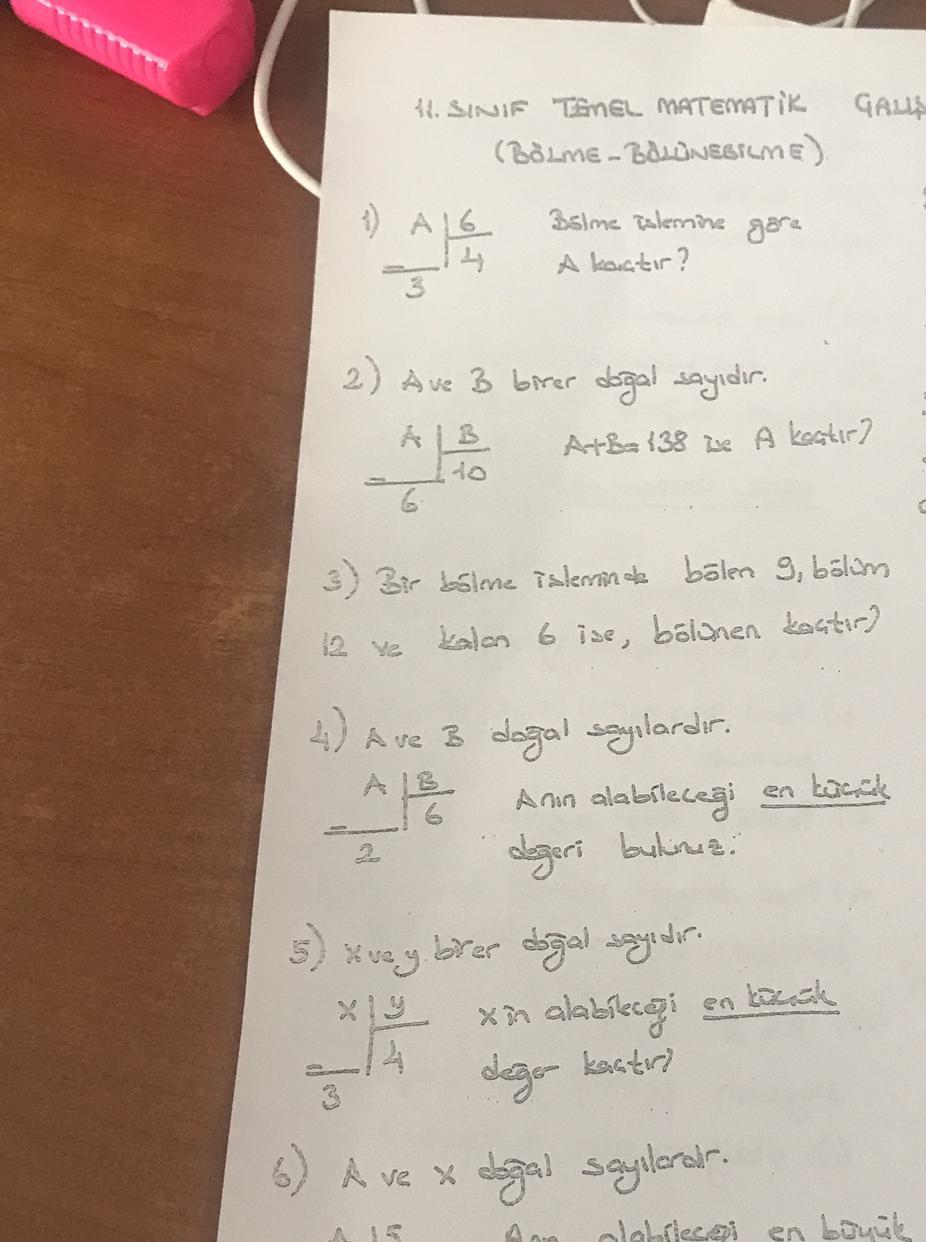 11. SINIF TEMEL MATEMATİK ÇALIŞ
(BÖLME-BÖLÜNEBİLME)
1) A | 6 Bölme işlemine göre
4 A kaçtır?
3
2) A ve B birer doğal sayıdır.
A | B A+B=138 ise A kaçtır?
10
6
3) Bir bölme işleminde bölen 9, bölüm
12 ve kalan 6 ise, bölünen kaçtır?
4) A ve B doğal sayılardır.
A | B Anın alabileceği en küçük
6
2 değeri bulunuz.
5) x ve y birer doğal sayıdır.
x | y xin alabileceği en küçük
4 değer kaçtır?
3
6) A ve x doğal sayılardır.
A | 15 Anın alabileceği en büyük